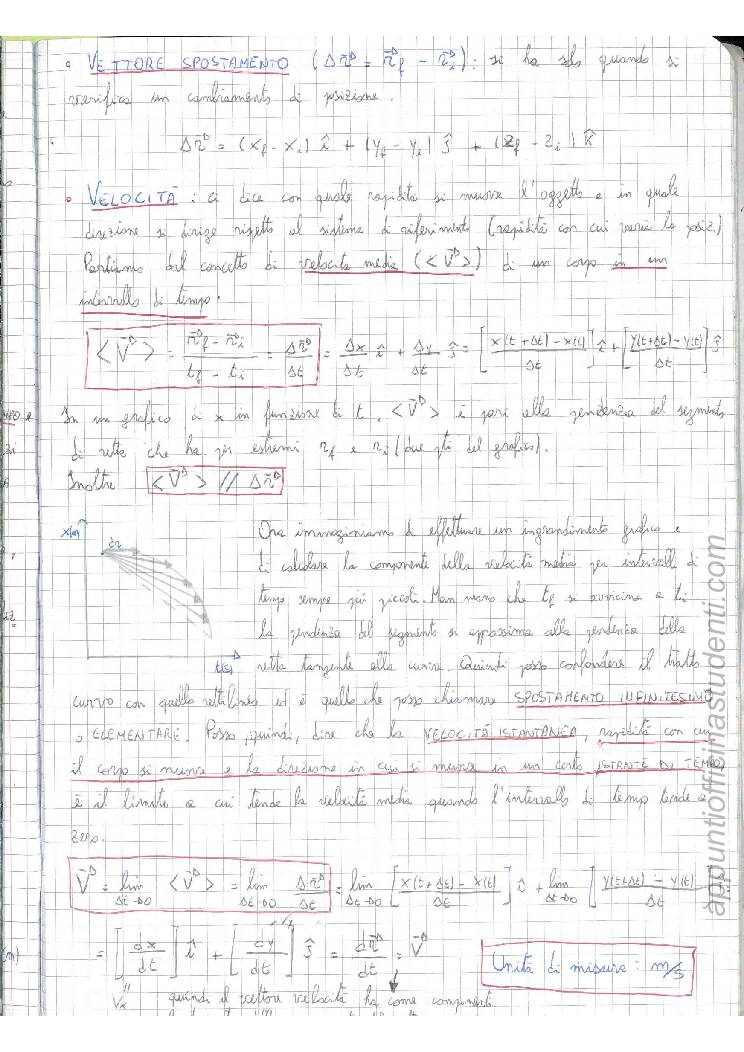 • VETTORE SPOSTAMENTO (Δr⃗ = r⃗f - r⃗i): si ha solo quando si
verifica un cambiamento di posizione.
Δr⃗ = (xf - xi) î + (yf - yi) ĵ + (zf - zi) k̂
• VELOCITÀ: ci dice con quale rapidità si muove l'oggetto e in quale
direzione si dirige rispetto al sistema di riferimento (rapidità con cui varia la posiz.)
Partiamo dal concetto di velocità media (<V⃗>) di un corpo in un
intervallo di tempo.
<V⃗> = (r⃗f - r⃗i)/(tf - ti) = Δr⃗/Δt = Δx/Δt î + Δy/Δt ĵ = [(x(t+Δt) - x(t))/Δt] î + [(y(t+Δt) - y(t))/Δt] ĵ
In un grafico di x in funzione di t, <V⃗> è pari alla pendenza del segmento
di retta che ha per estremi rf e ri (due pti del grafico).
Inoltre <V⃗> // Δr⃗
x(m)
dr
t(s)
Ora immaginiamo di effettuare un ingrandimento grafico e
di calcolare la componente della velocità media per intervalli di
tempo sempre più piccoli. Man mano che tf si avvicina a ti
la pendenza del segmento si approssima alla pendenza della
retta tangente alla curva. Quindi posso confondere il tratto
curvo con quello rettilineo ed è quello che posso chiamare SPOSTAMENTO INFINITESIMO
o ELEMENTARE. Posso, quindi, dire che la VELOCITÀ ISTANTANEA, rapidità con cui
il corpo si muove e ha direzione in cui si muove in un certo ISTANTE DI TEMPO,
è il limite a cui tende la velocità media quando l'intervallo di temp tende a
zero.
V⃗ = lim Δt→0 <V⃗> = lim Δt→0 Δr⃗/Δt = lim Δt→0 [(x(t+Δt) - x(t))/Δt] î + lim Δt→0 [(y(t+Δt) - y(t))/Δt
= [dx/dt] î + [dy/dt] ĵ = dr⃗/dt = V⃗
Unità di misura: m/s
Vx quindi il vettore velocità ha come componenti
appuntiofficinastudenti.com